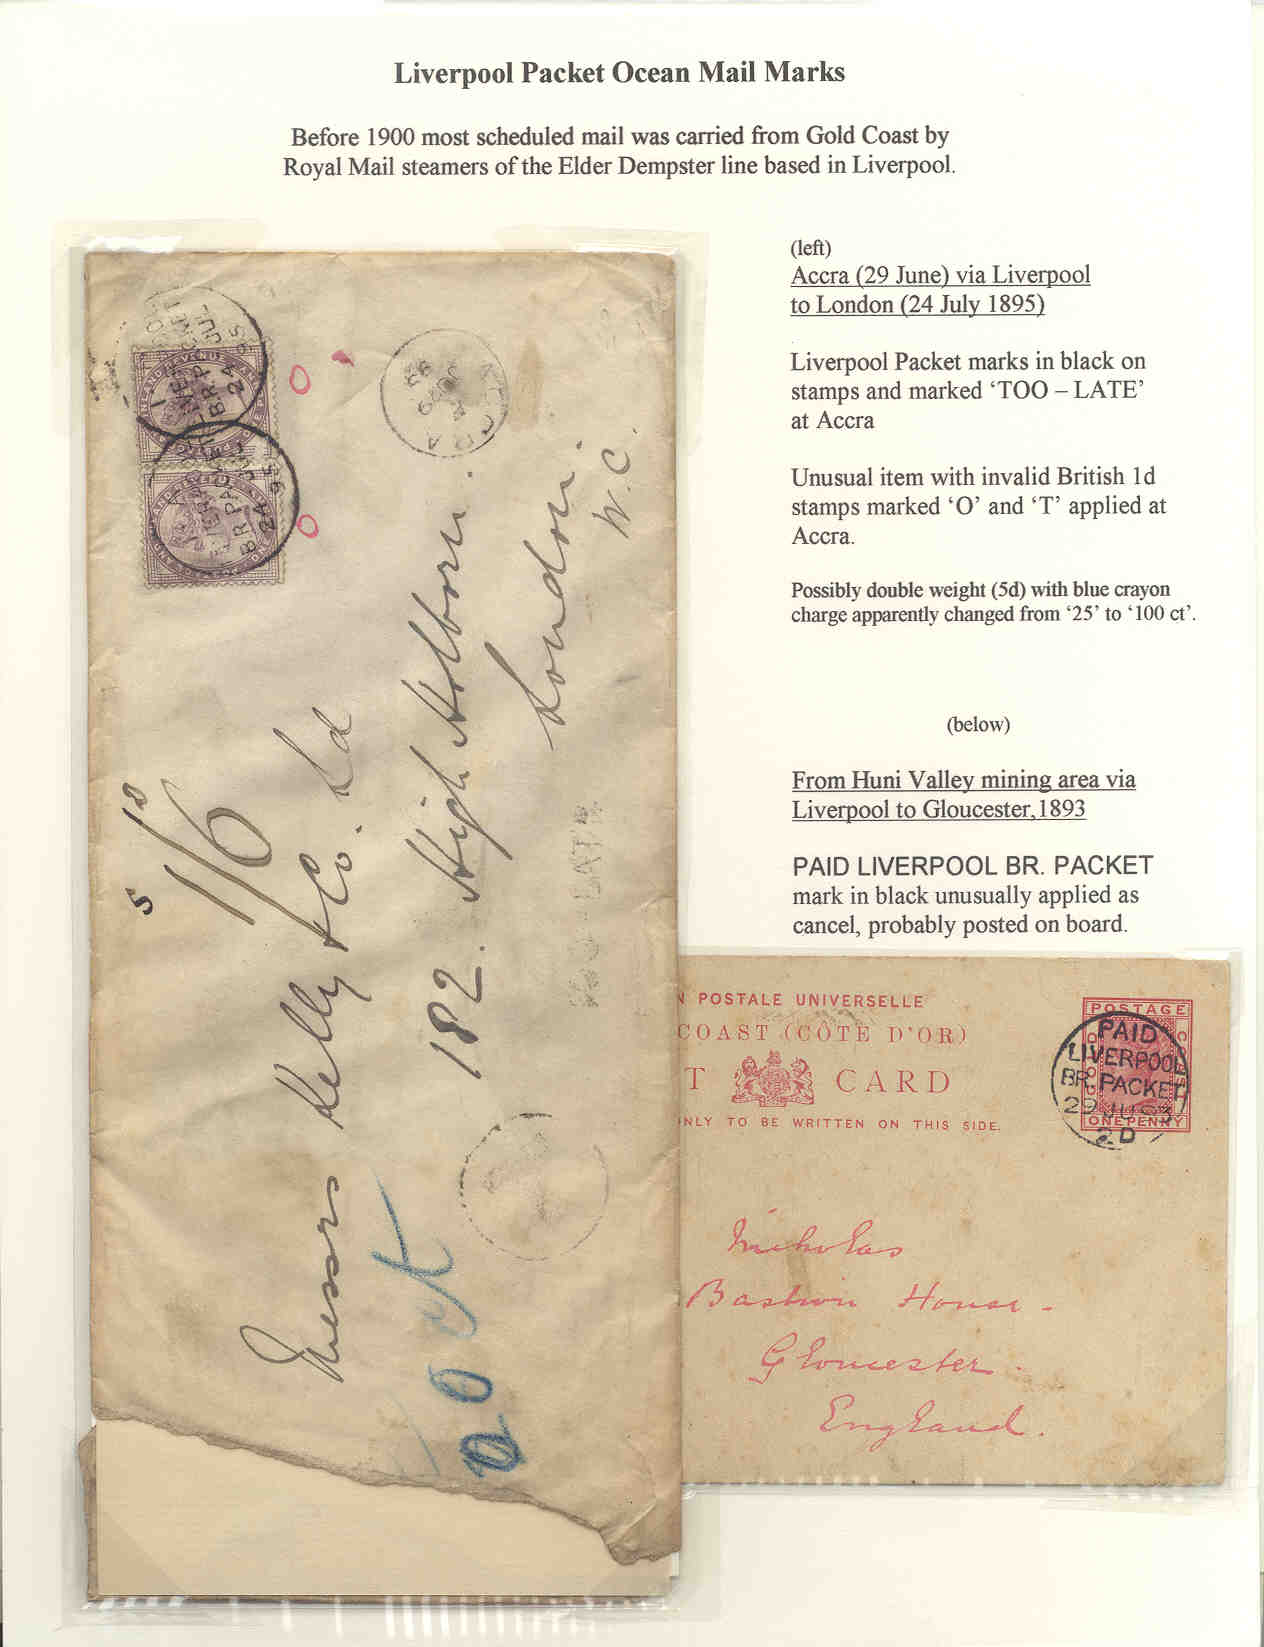 Liverpool Packet Ocean Mail Marks
Before 1900 most scheduled mail was carried from Gold Coast by
Royal Mail steamers of the Elder Dempster line based in Liverpool.
(left)
Accra (29 June) via Liverpool
to London (24 July 1895)
Liverpool Packet marks in black on
stamps and marked ‘TOO – LATE’
at Accra
Unusual item with invalid British 1d
stamps marked ‘O’ and ‘T’ applied at
Accra.
Possibly double weight (5d) with blue crayon
charge apparently changed from ‘25’ to ‘100 ct’.
(below)
From Huni Valley mining area via
Liverpool to Gloucester,1893
PAID LIVERPOOL BR. PACKET
mark in black unusually applied as
cancel, probably posted on board.
Messrs Kelly & Co. Ld
182. High Holborn.
London.
W.C.
1/6
ACCRA
BR PACKET
24 JUL 95
BR PACKET
24 JUL 95
TOO-LATE
N POSTALE UNIVERSELLE
COAST (CÔTE D'OR)
T CARD
ONLY TO BE WRITTEN ON THIS SIDE.
POSTAGE
ONE PENNY
PAID
LIVERPOOL
BR. PACKET
29 JU 93
2D
Nicholas
Bastion House -
Gloucester.
England.